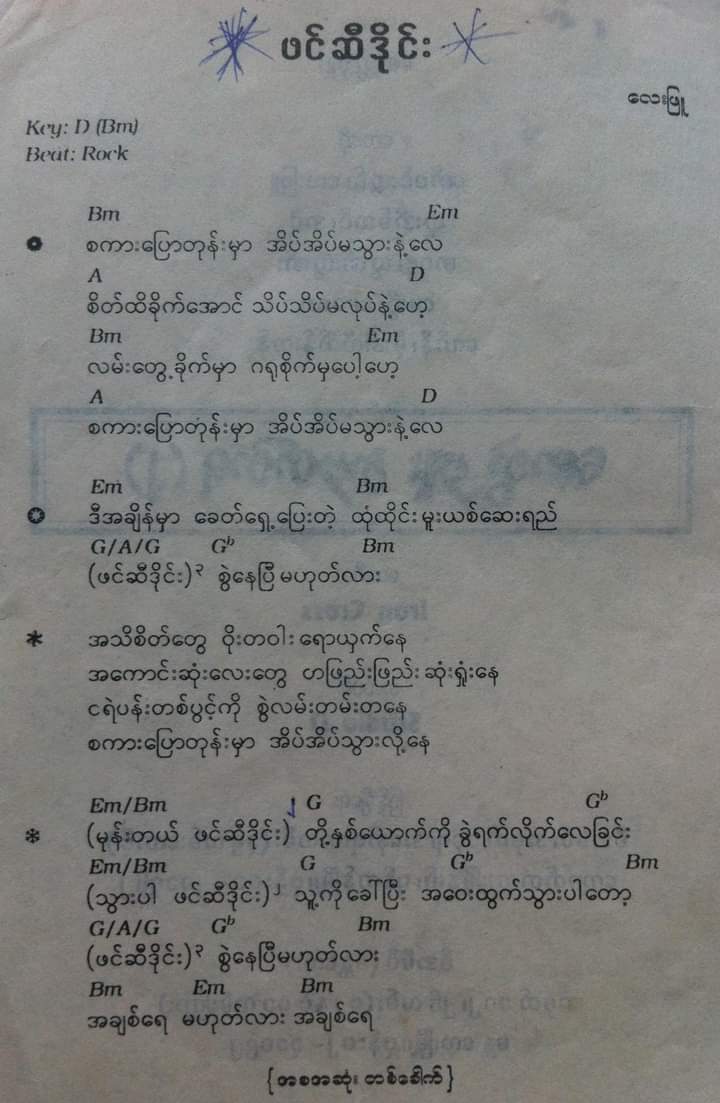 ဖင်ဆီဒိုင်း
လေးဖြူ
Key: D (Bm)
Beat: Rock
Bm Em
စကားပြောတုန်းမှာ အိပ်အိပ်မသွားနဲ့လေ
A D
စိတ်ထိခိုက်အောင် သိပ်သိပ်မလုပ်နဲ့ဟေ့
Bm Em
လမ်းတွေ့ခိုက်မှာ ဂရုစိုက်မှပေါ့ဟေ့
A D
စကားပြောတုန်းမှာ အိပ်အိပ်မသွားနဲ့လေ
Em Bm
ဒီအချိန်မှာ ခေတ်ရှေ့ပြေးတဲ့ ထုံထိုင်းမူးယစ်ဆေးရည်
G/A/G Gb Bm
(ဖင်ဆီဒိုင်း)၃ စွဲနေပြီမဟုတ်လား
* အသိစိတ်တွေ ဝိုးတဝါးရောယှက်နေ
အကောင်းဆုံးလေးတွေ ဟဖြည်းဖြည်းဆုံးရှုံးနေ
ငရဲပန်းတစ်ပွင့်ကို စွဲလမ်းတမ်းတနေ
စကားပြောတုန်းမှာ အိပ်အိပ်သွားလို့နေ
Em/Bm ၂ G Gb
* (မုန်းတယ် ဖင်ဆီဒိုင်း) တို့နှစ်ယောက်ကိုခွဲရက်လိုက်လေခြင်း
Em/Bm G Gb Bm
(သွားပါ ဖင်ဆီဒိုင်း)၂ သူ့ကိုခေါ်ပြီး အဝေးထွက်သွားပါတော့
G/A/G Gb Bm
(ဖင်ဆီဒိုင်း)၃ စွဲနေပြီမဟုတ်လား
Bm Em Bm
အချစ်ရေ မဟုတ်လား အချစ်ရေ
{အစအဆုံး တစ်ခေါက်}